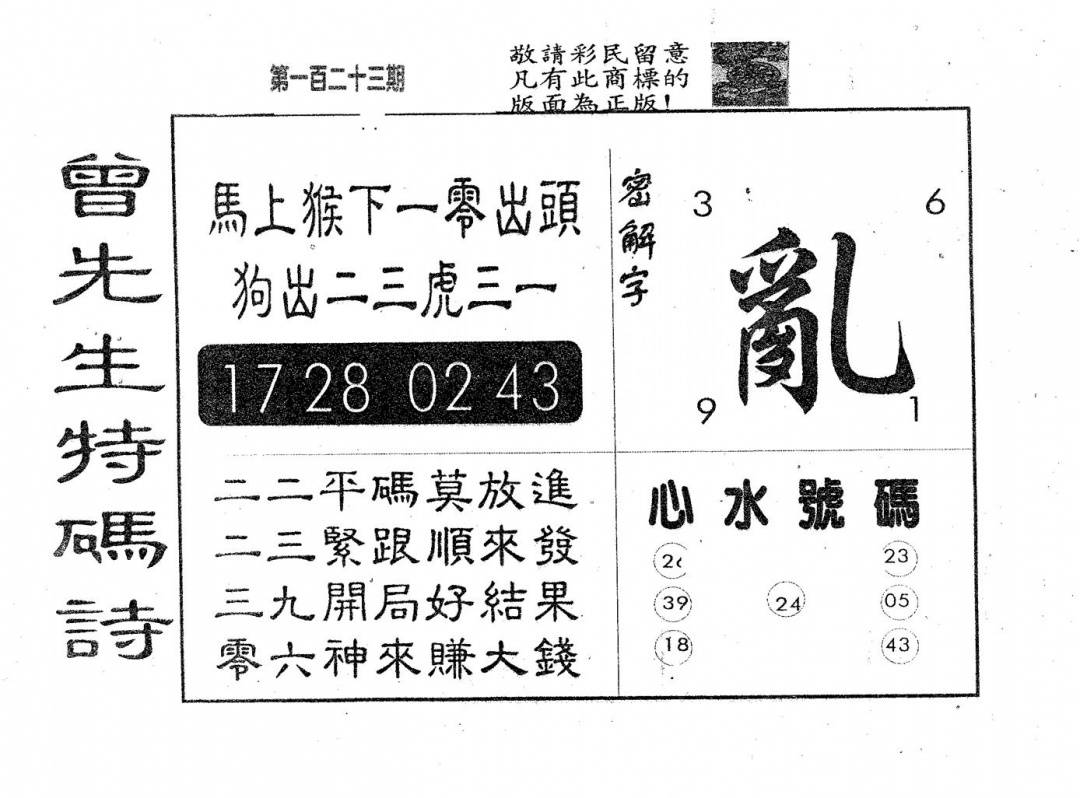 第一百二十三期
敬請彩民留意
凡有此商標的
版面為正版！
曾先生特碼詩
馬上猴下一零出頭
狗出二三虎三一
17 28 02 43
二二平碼莫放進
二三緊跟順來發
三九開局好結果
零六神來賺大錢
密解字
3 6
亂
9 1
心水號碼
26 23
39 24 05
18 43